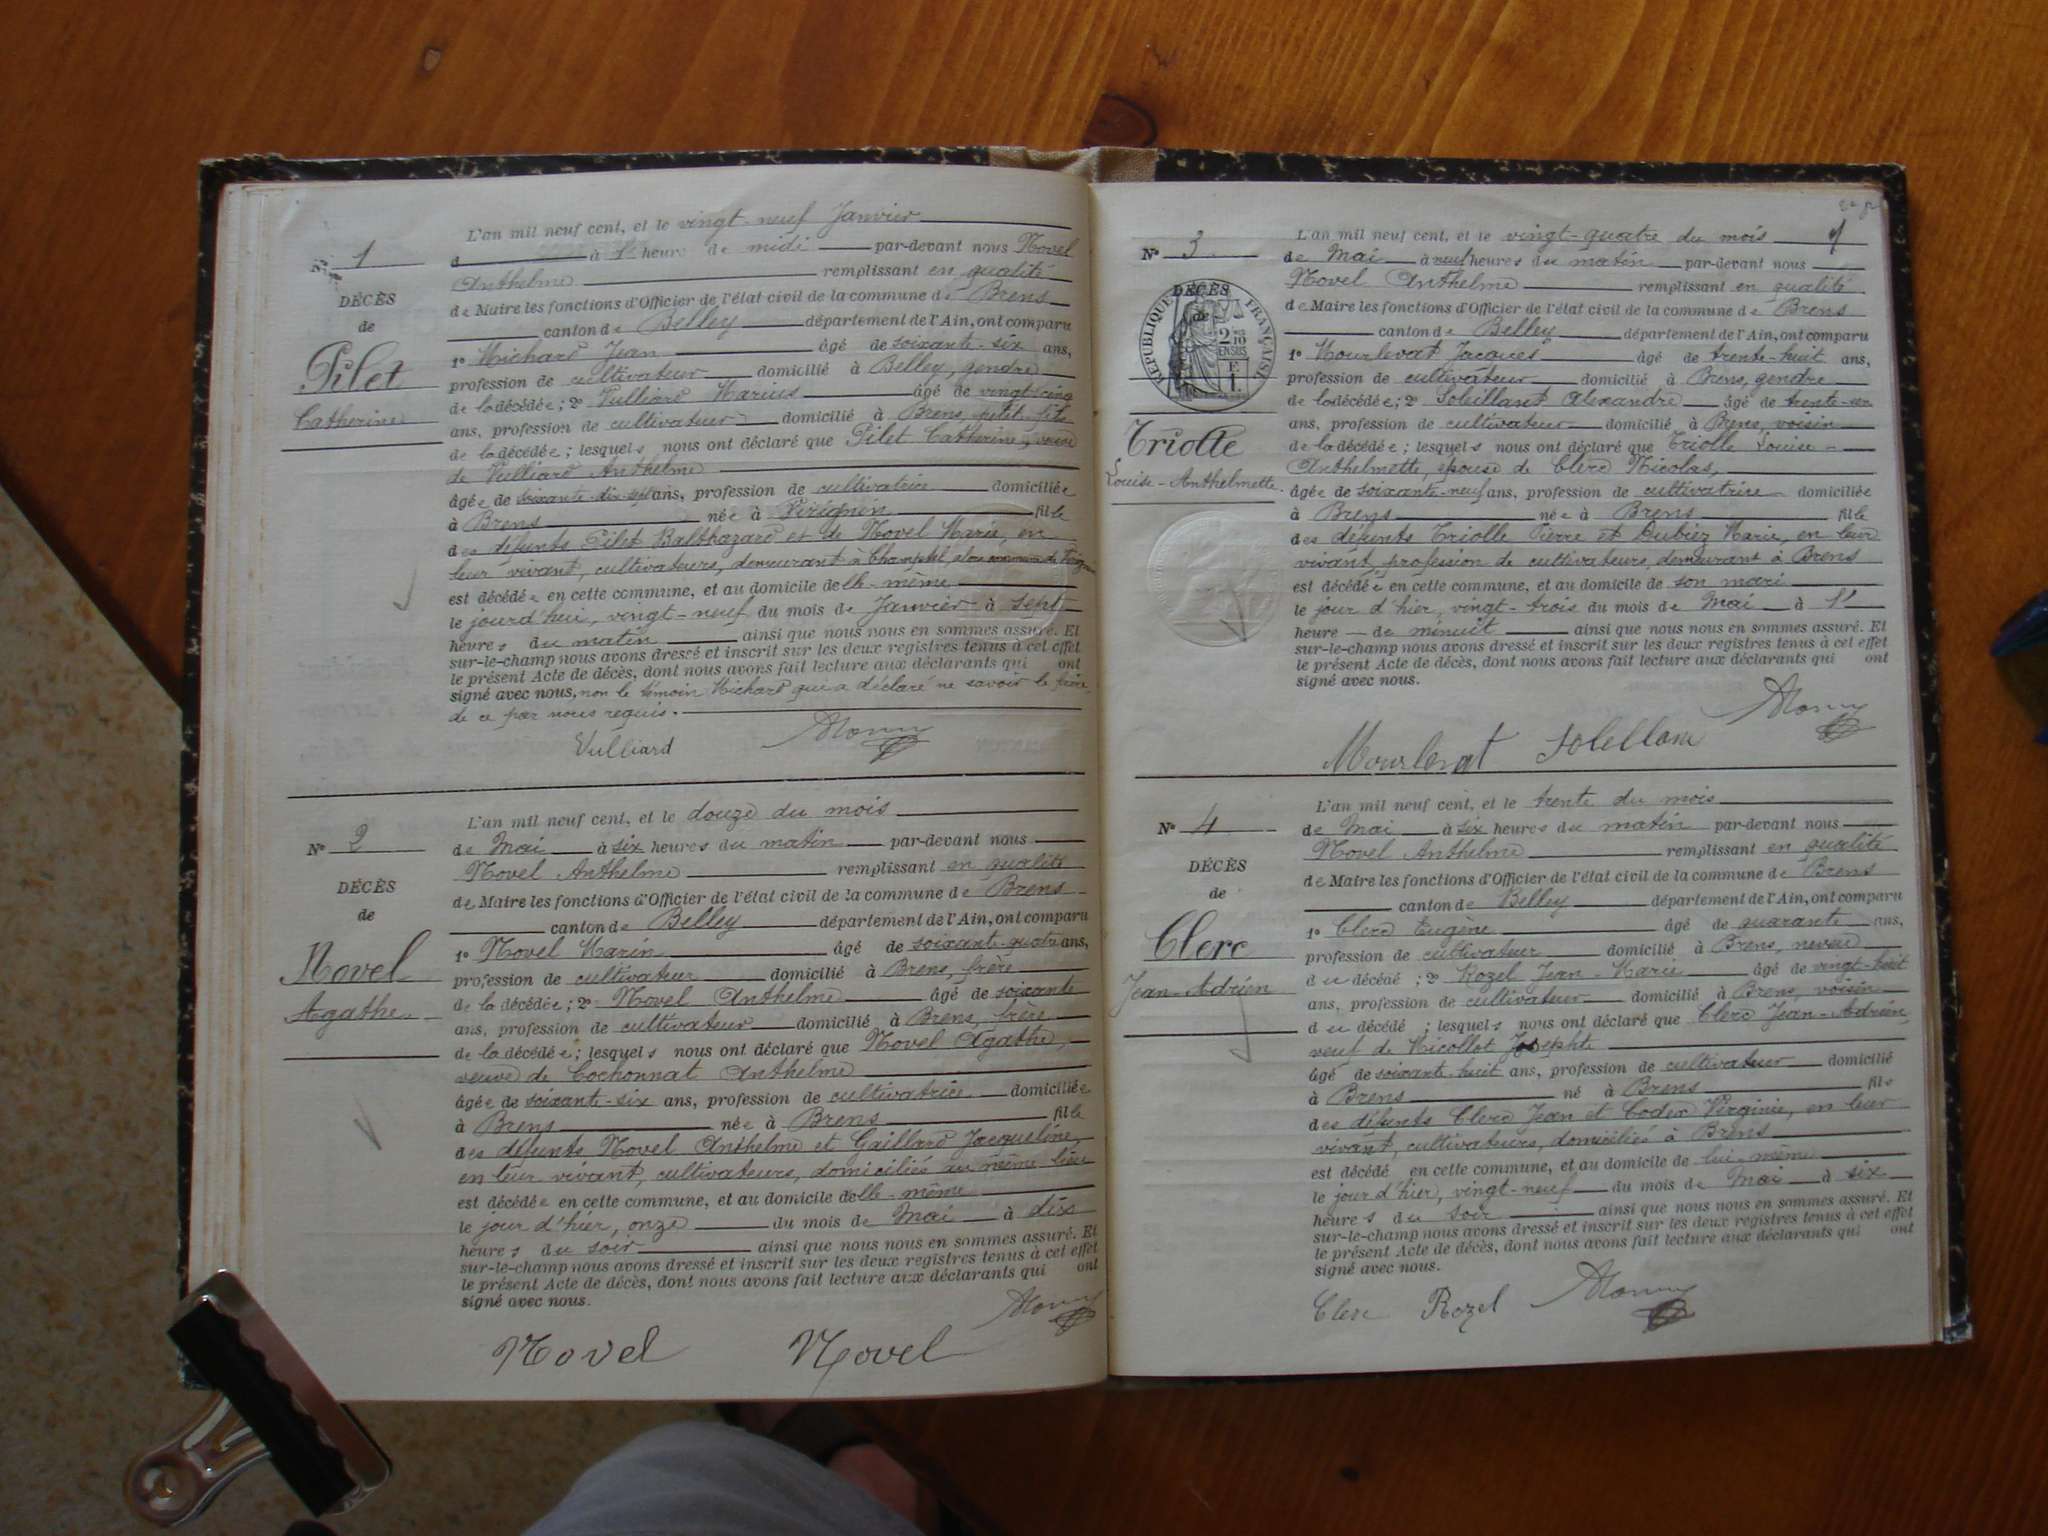 N° 1
DÉCÈS
de
Pilet
Catherine
L'an mil neuf cent, et le vingt-neuf Janvier
d à 1 heure de midi par-devant nous Novel
Anthelme remplissant en qualité
de Maire les fonctions d'Officier de l'état civil de la commune de Brens
canton de Belley département de l'Ain, ont comparu
1º Michard Jean âgé de soixante-six ans,
profession de cultivateur domicilié à Belley, gendre
de la décédée; 2º Vulliard Marius âgé de vingt-cinq
ans, profession de cultivateur domicilié à Brens, petit-fils
de la décédée; lesquels nous ont déclaré que Pilet Catherine, veuve
de Vulliard Anthelme
âgée de soixante-dix-sept ans, profession de cultivatrice domiciliée
à Brens née à Virignin fille
des défunts Pilet Balthazard et de Novel Marie, en
leur vivant, cultivateurs, demeurant à Champtel, commune de Virignin
est décédée en cette commune, et au domicile d'elle-même
le jourd'hui, vingt-neuf du mois de Janvier à sept
heures du matin ainsi que nous nous en sommes assuré. Et
sur-le-champ nous avons dressé et inscrit sur les deux registres tenus à cet effet
le présent Acte de décès, dont nous avons fait lecture aux déclarants qui ont
signé avec nous, non le témoin Michard qui a déclaré ne savoir le faire,
de ce par nous requis.
Vulliard
N° 2
DÉCÈS
de
Novel
Agathe
L'an mil neuf cent, et le douze du mois
de Mai à six heures du matin par-devant nous
Novel Anthelme remplissant en qualité
de Maire les fonctions d'Officier de l'état civil de la commune de Brens
canton de Belley département de l'Ain, ont comparu
1º Novel Marin âgé de soixante-quatre ans,
profession de cultivateur domicilié à Brens, frère
de la décédée; 2º Novel Anthelme âgé de soixante
ans, profession de cultivateur domicilié à Brens, frère
de la décédée; lesquels nous ont déclaré que Novel Agathe,
veuve de Cochonnat Anthelme
âgée de soixante-six ans, profession de cultivatrice domiciliée
à Brens née à Brens fille
des défunts Novel Anthelme et Gaillard Jacqueline,
en leur vivant, cultivateurs, domiciliés au même lieu
est décédée en cette commune, et au domicile d'elle-même
le jour d'hier, onze du mois de Mai à dix
heures du soir ainsi que nous nous en sommes assuré. Et
sur-le-champ nous avons dressé et inscrit sur les deux registres tenus à cet effet
le présent Acte de décès, dont nous avons fait lecture aux déclarants qui ont
signé avec nous.
Novel Novel
N° 3
DÉCÈS
de
RÉPUBLIQUE FRANÇAISE
Triolle
Louise-Anthelmette
L'an mil neuf cent, et le vingt-quatre du mois
de Mai à neuf heures du matin par-devant nous
Novel Anthelme remplissant en qualité
de Maire les fonctions d'Officier de l'état civil de la commune de Brens
canton de Belley département de l'Ain, ont comparu
1º Mourlevat Jacques âgé de trente-huit ans,
profession de cultivateur domicilié à Brens, gendre
de la décédée; 2º Soleillant Alexandre âgé de trente-six
ans, profession de cultivateur domicilié à Brens, voisin
de la décédée; lesquels nous ont déclaré que Triolle Louise-
Anthelmette, épouse de Clerc Nicolas,
âgée de soixante-neuf ans, profession de cultivatrice domiciliée
à Brens née à Brens fille
des défunts Triolle Pierre et Dubiez Marie, en leur
vivant, profession de cultivateurs, demeurant à Brens
est décédée en cette commune, et au domicile de son mari
le jour d'hier, vingt-trois du mois de Mai à l'
heure de minuit ainsi que nous nous en sommes assuré. Et
sur-le-champ nous avons dressé et inscrit sur les deux registres tenus à cet effet
le présent Acte de décès, dont nous avons fait lecture aux déclarants qui ont
signé avec nous.
Mourlevat Solellant
N° 4
DÉCÈS
de
Clerc
Jean-Adrien
L'an mil neuf cent, et le trente du mois
de Mai à six heures du matin par-devant nous
Novel Anthelme remplissant en qualité
de Maire les fonctions d'Officier de l'état civil de la commune de Brens
canton de Belley département de l'Ain, ont comparu
1º Clerc Eugène âgé de quarante ans,
profession de cultivateur domicilié à Brens, neveu
du décédé; 2º Rozel Jean-Marie âgé de vingt-huit
ans, profession de cultivateur domicilié à Brens, voisin
du décédé; lesquels nous ont déclaré que Clerc Jean-Adrien,
veuf de Nicollet Josephte
âgé de soixante-huit ans, profession de cultivateur domicilié
à Brens né à Brens fils
des défunts Clerc Jean et Codex Virginie, en leur
vivant, cultivateurs, domiciliés à Brens
est décédé en cette commune, et au domicile de lui-même
le jour d'hier, vingt-neuf du mois de Mai à six
heures du soir ainsi que nous nous en sommes assuré. Et
sur-le-champ nous avons dressé et inscrit sur les deux registres tenus à cet effet
le présent Acte de décès, dont nous avons fait lecture aux déclarants qui ont
signé avec nous.
Clerc Rozel